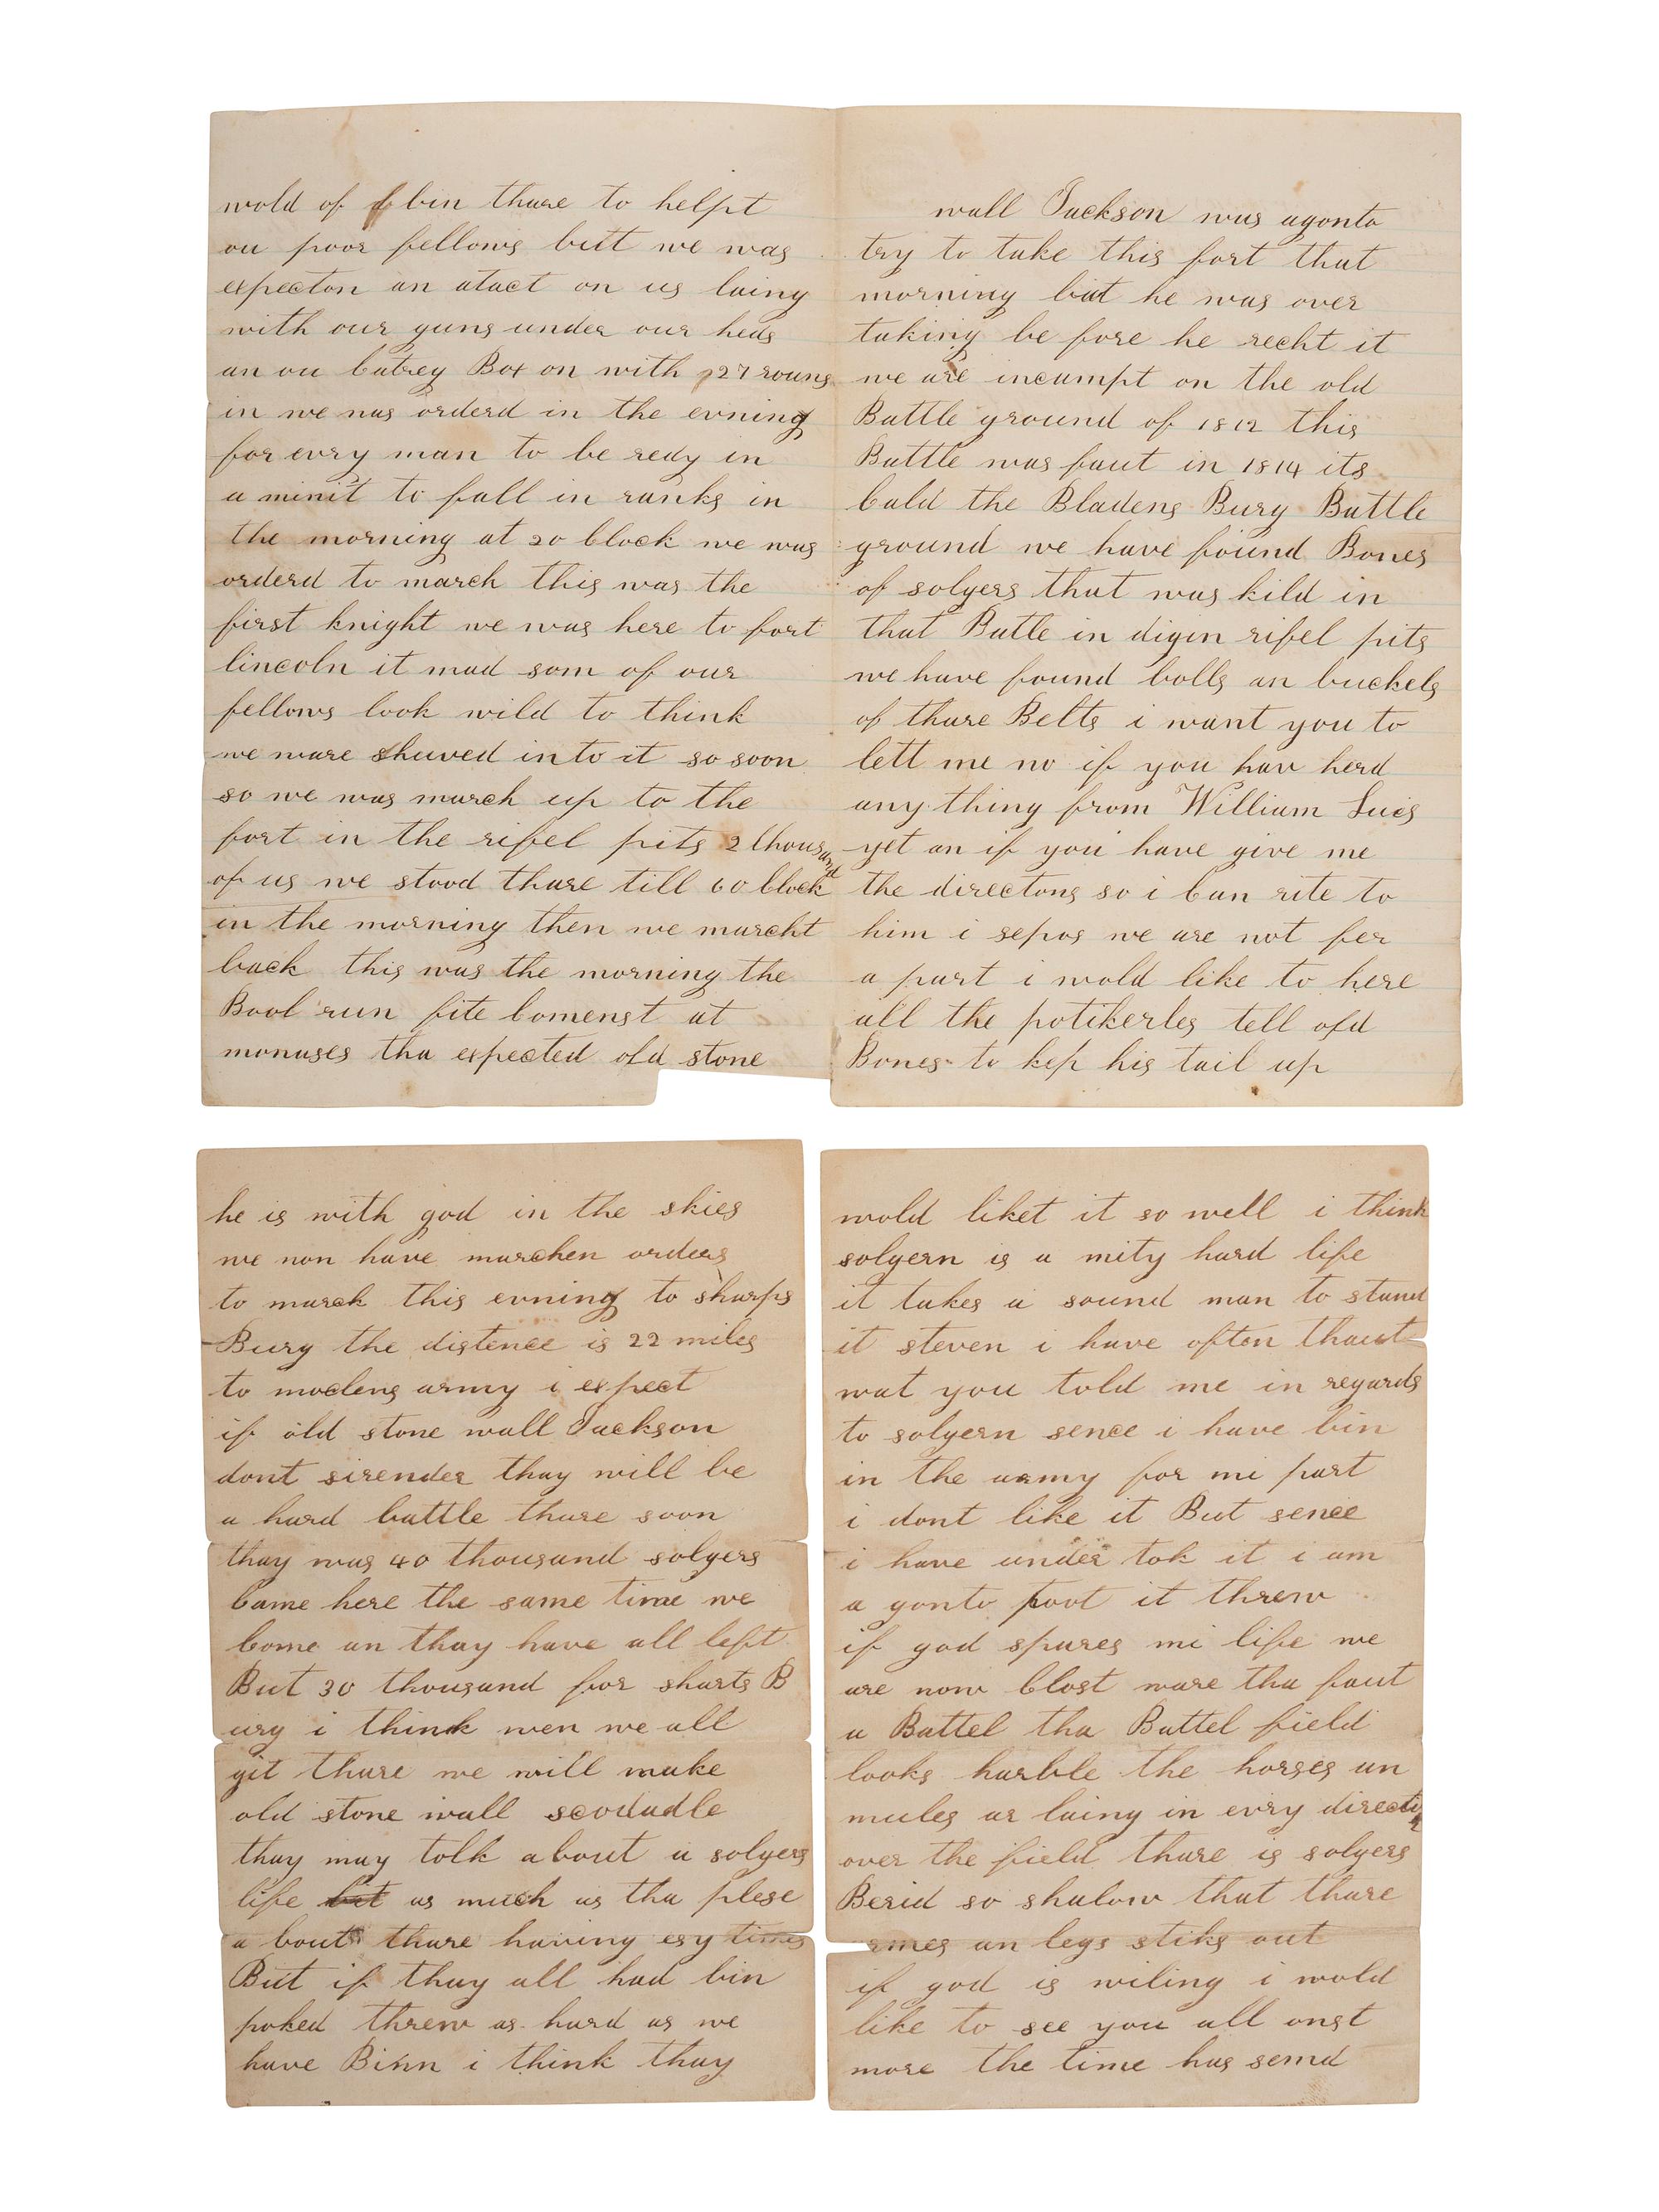 wold of bin thare to helpt
ou poor fellows butt we was
expecton an atact on us laing
with our guns under our heds
an ou catreg Box on with 27 rouns
in we was orderd in the evning
for evry man to be redy in
a minit to fall in ranks in
the morning at 20 clock we was
orderd to march this was the
first knight we was here to fort
lincoln it mad som of our
fellows look wild to think
we ware shuved in to it so soon
so we was march up to the
fort in the rifel pits 2 thousand
of us we stood thare till 60 clock
in the morning then we marcht
back this was the morning the
Bool run fite comenst at
monases tha expected old stone
wall Jackson was agonto
try to take this fort that
morning but he was over
taking be fore he recht it
we are incampt on the old
Battle ground of 1812 this
Battle was faut in 1814 its
cald the Bladens Bury Battle
ground we have found Bones
of solgers that was kild in
that Batle in digin rifel pits
we have found bolls an buckels
of thare Belts i want you to
lett me no if you hav herd
any thing from William Luis
yet an if you have give me
the directons so i can rite to
him i sepos we are not fer
a part i wold like to here
all the potikerles tell old
Bones to kep his tail up
he is with god in the skies
we now have marchen orders
to march this evning to sharps
Bury the distence is 22 miles
to moclens army i expect
if old stone wall Jackson
dont sirender thay will be
a hard battle thare soon
thay was 40 thousand solgers
came here the same time we
come an thay have all left
But 30 thousand for sharts B
ury i think wen we all
git thare we will make
old stone wall scodadle
thay may tolk about a solgers
life as much as tha plese
a bout thare having esy times
But if thay all had bin
poked threw as hard as we
have Binn i think thay
wold liket it so well i think
solgern is a mity hard life
it takes a sound man to stand
it steven i have often thaut
wat you told me in regards
to solgern sence i have bin
in the army for mi part
i dont like it But sence
i have under tok it i am
a gonto poot it threw
if god spares mi life we
are now clost ware tha faut
a Battel tha Battel field
looks harble the horses an
mules ar laing in evry directin
over the field thare is solgers
Berid so shalow that thare
armes an legs stiks out
if god is wiling i wold
like to see you all onst
more the time has semd